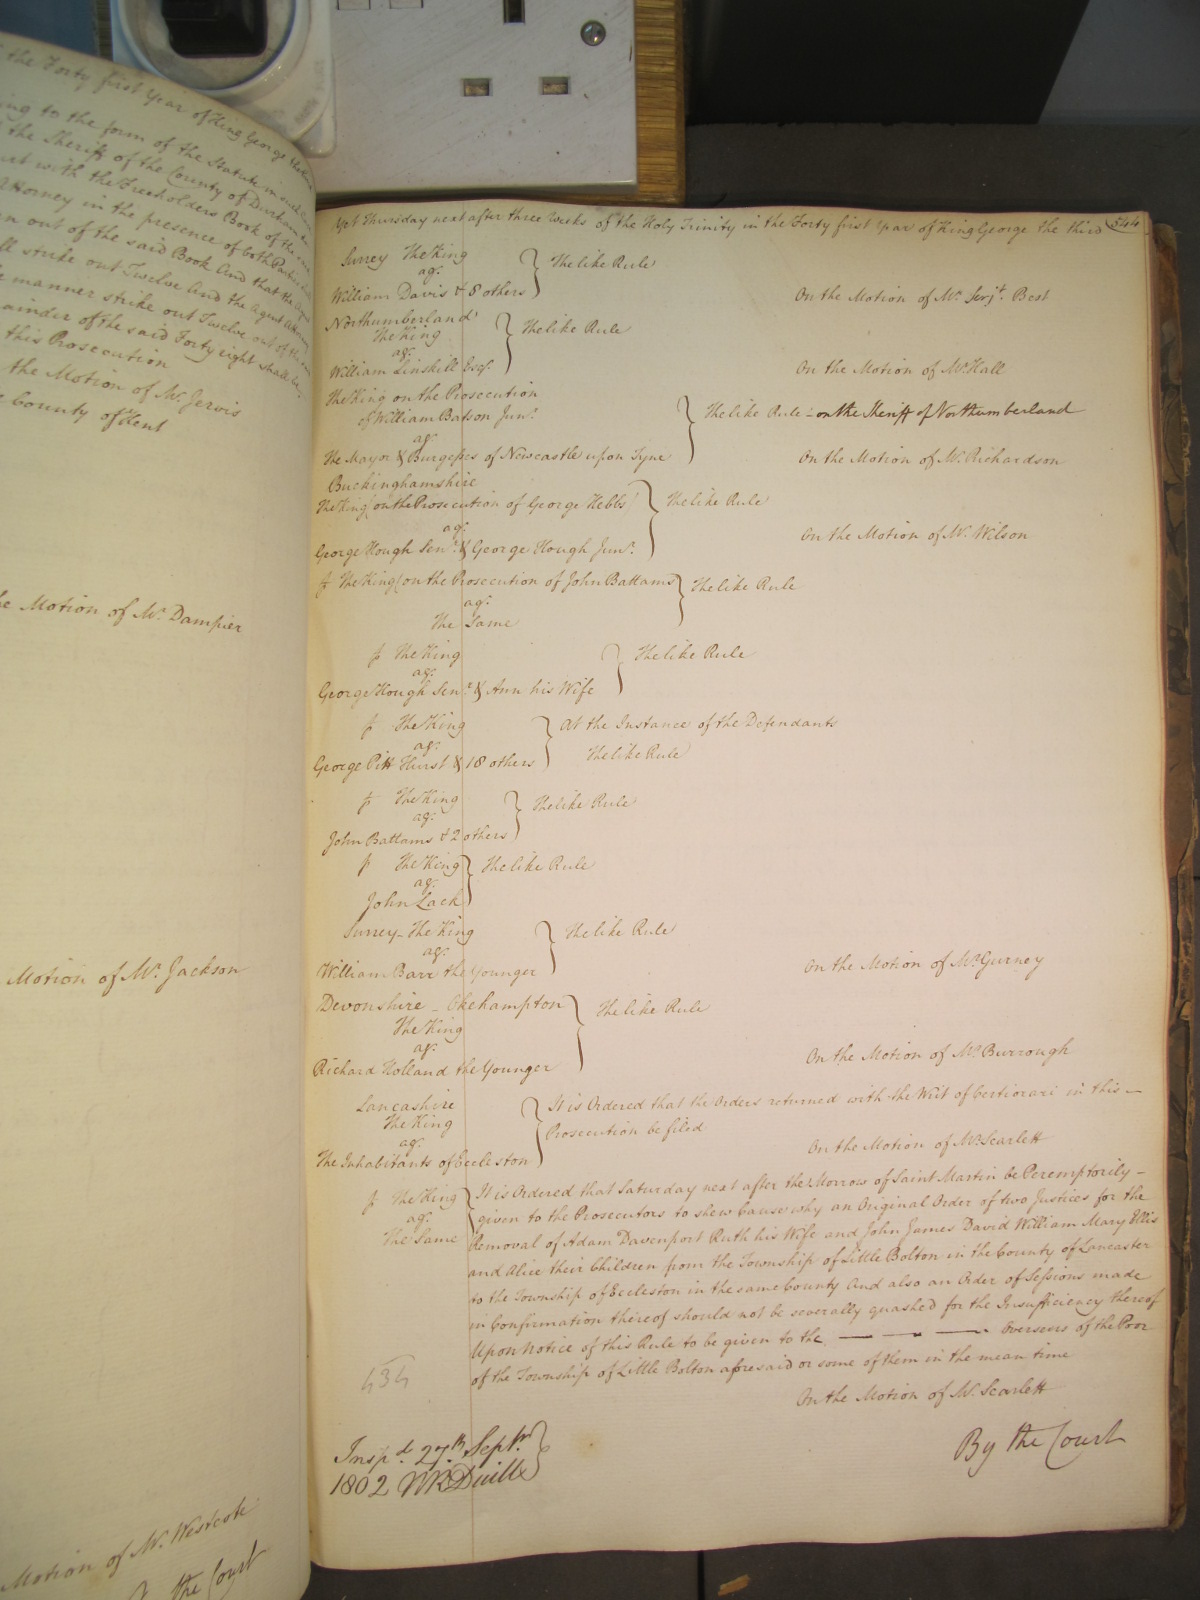 the Forty first Year of King George the
ing to the form of the Statute in such
the Sheriff of the County of Durham
with the Freeholders Book of the
Attorney in the presence of both Parties
out of the said Book And that the
strike out Twelve And the Agent
manner strike out Twelve out of the
ainder of the said Forty eight shall be
this Prosecution
the Motion of Mr. Jervis
County of Kent
Motion of Mr. Dampier
Motion of Mr. Jackson
Motion of Mr. Westcote
the Court
Yet Thursday next after three Weeks of the Holy Trinity in the Forty first Year of King George the third 544
Surrey The King
agt.
William Davis & 8 others
The like Rule
On the Motion of Mr. Serjt. Best
Northumberland
The King
agt.
William Linskill Esqr.
The like Rule
On the Motion of Mr. Hall
The King on the Prosecution
of William Batson Junr.
agt.
The Mayor & Burgesses of Newcastle upon Tyne
The like Rule - on the Sheriff of Northumberland
On the Motion of Mr. Richardson
Buckinghamshire
The King (on the Prosecution of George Hebbs)
agt.
George Hough Senr. & George Hough Junr.
The like Rule
On the Motion of Mr. Wilson
The King (on the Prosecution of John Battams
agt.
The Same
The like Rule
The King
agt.
George Hough Senr. & Ann his Wife
The like Rule
The King
agt.
George Pitt Hurst & 18 others
At the Instance of the Defendants
The like Rule
The King
agt.
John Battams & 2 others
The like Rule
The King
agt.
John Lack
The like Rule
Surrey - The King
agt.
William Barr the Younger
The like Rule
On the Motion of Mr. Gurney
Devonshire - Okehampton
The King
agt.
Richard Holland the Younger
The like Rule
On the Motion of Mr. Burrough
Lancashire
The King
agt.
The Inhabitants of Eccleston
It is Ordered that the Orders returned with the Writ of Certiorari in this -
Prosecution be filed
On the Motion of Mr. Scarlett
The King
agt.
The Same
It is Ordered that Saturday next after the Morrow of Saint Martin be Peremptorily -
given to the Prosecutors to shew Cause why an Original Order of two Justices for the
Removal of Adam Davenport Ruth his Wife and John James David William Mary Ellis
and Alice their Children from the Township of Little Bolton in the County of Lancaster
to the Township of Eccleston in the same County And also an Order of Sessions made
in Confirmation thereof should not be severally quashed for the Insufficiency thereof
Upon Notice of this Rule to be given to the — — — Overseers of the Poor
of the Township of Little Bolton aforesaid or some of them in the mean time
On the Motion of Mr. Scarlett
434
By the Court
Inspd. 27th Septr.
1802